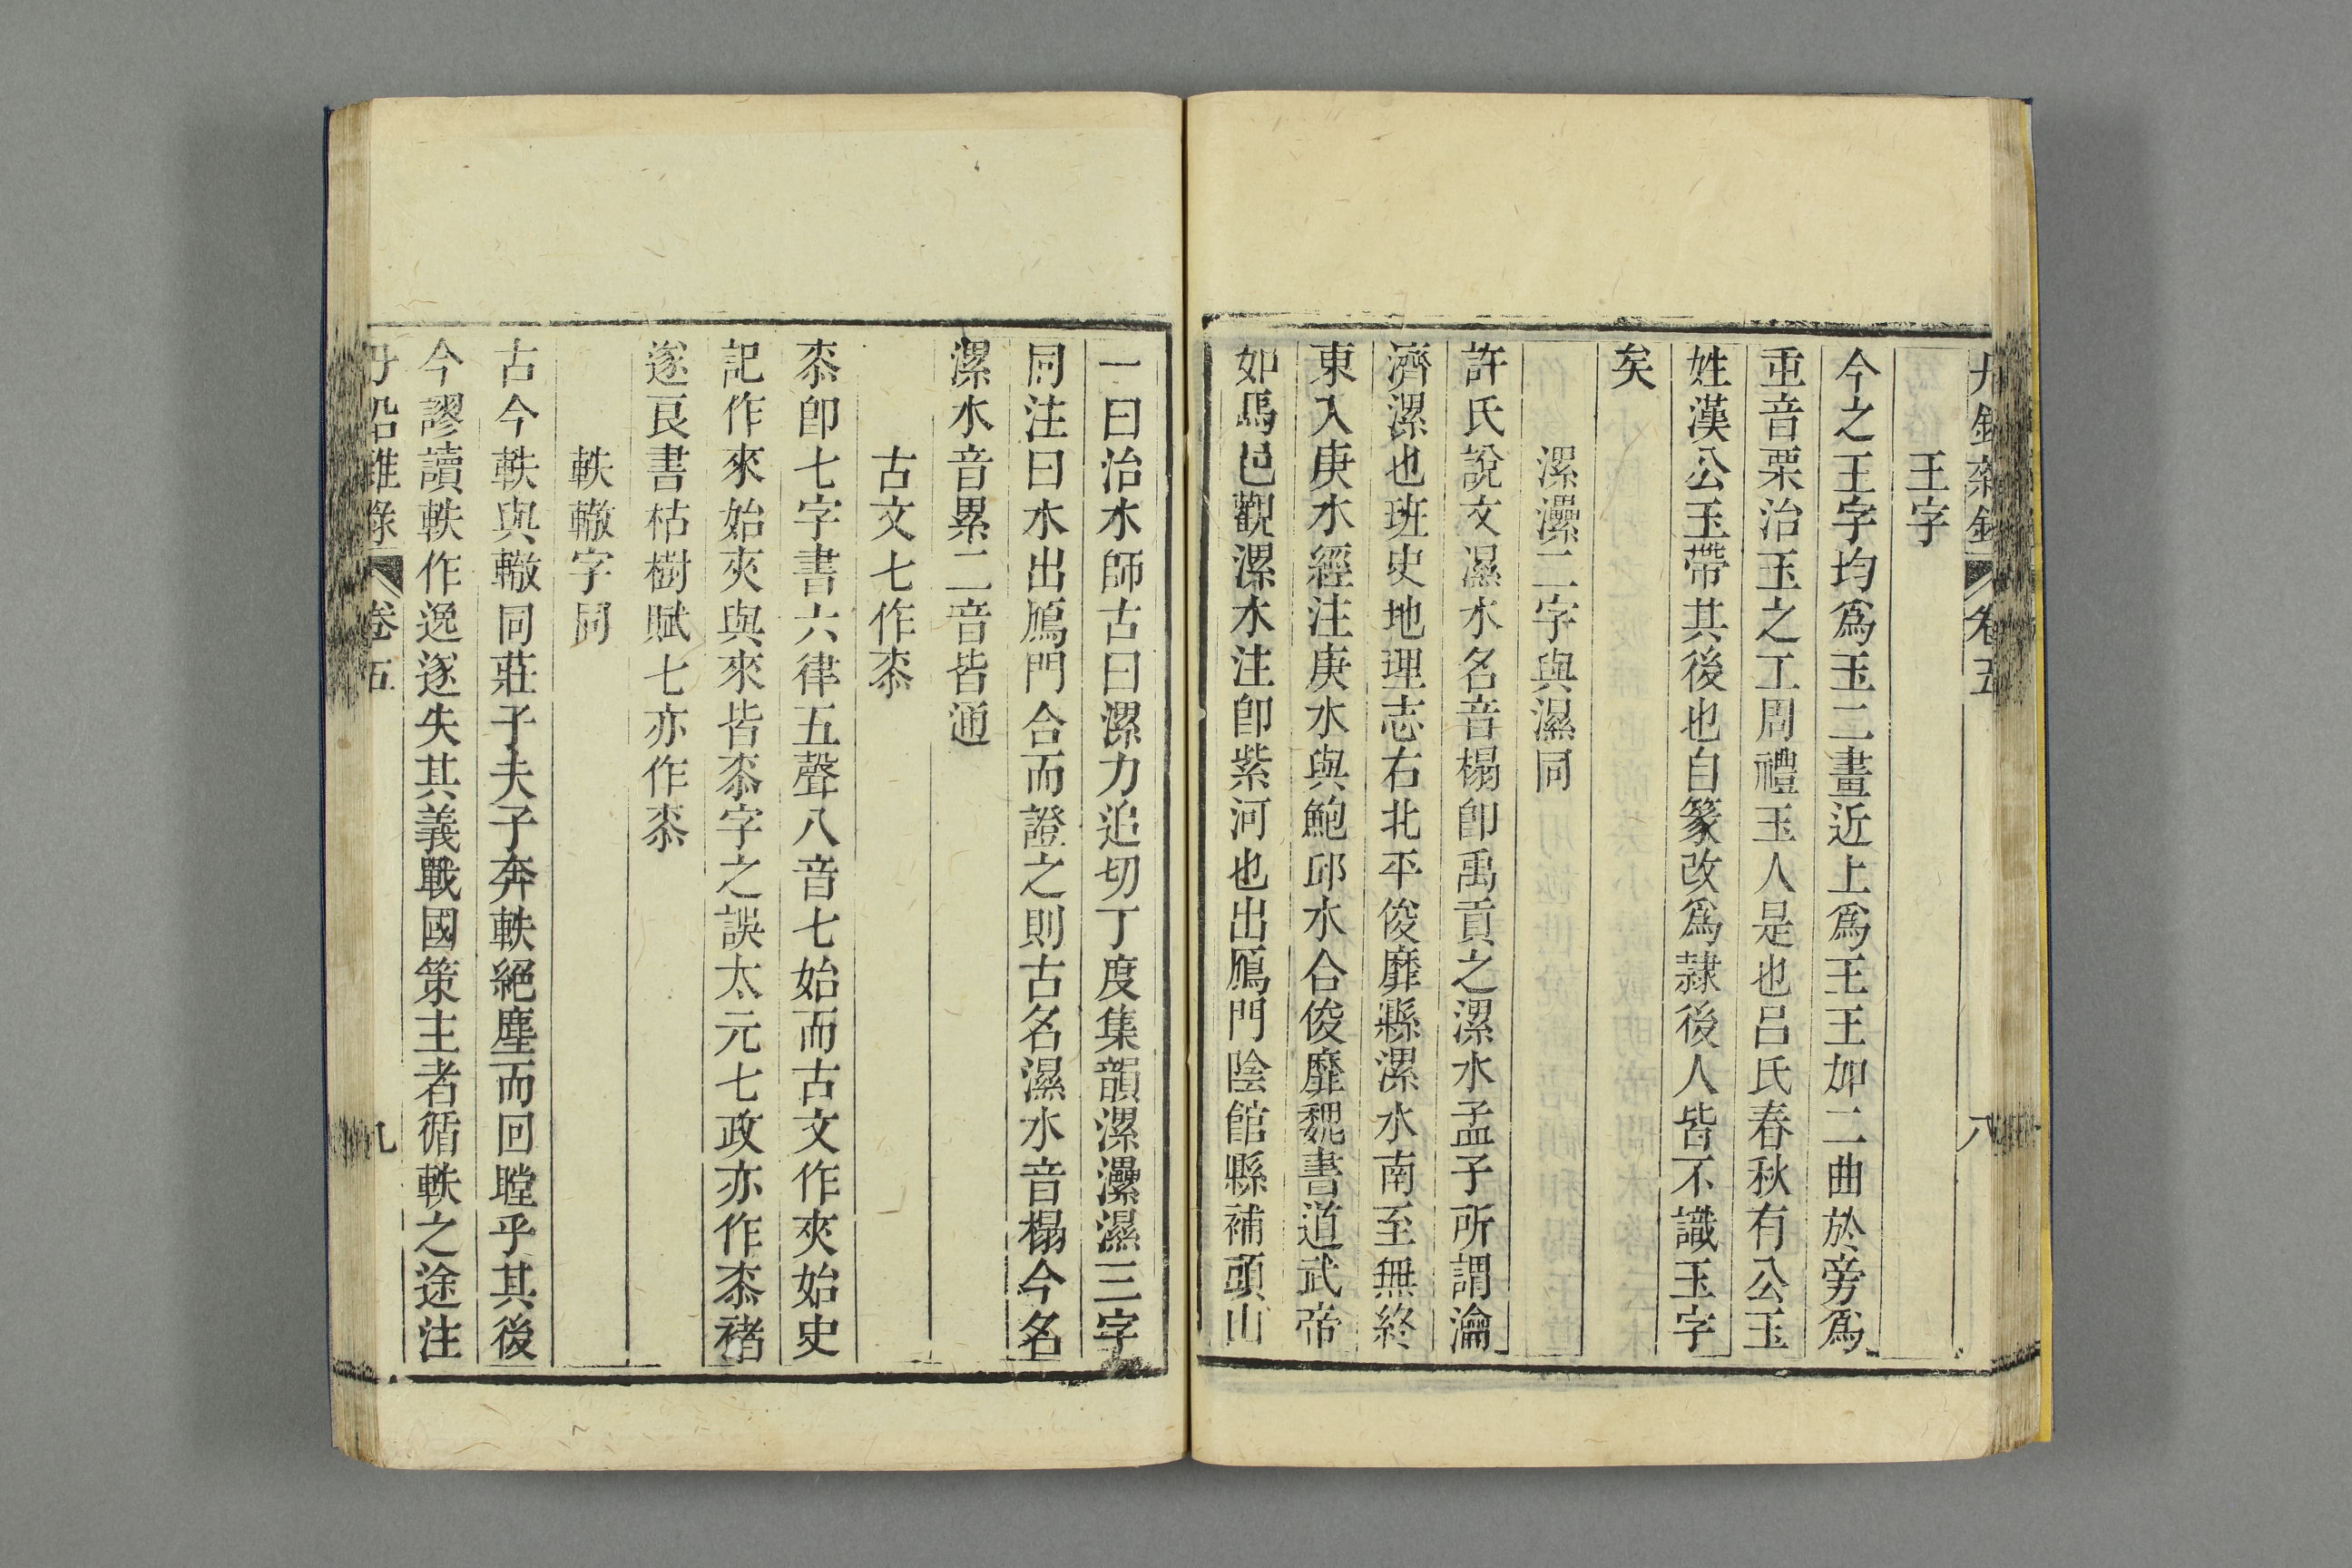 丹鉛雜錄 卷五 八
王字
今之王字均爲玉二畫近上爲王王如二曲於旁爲
重音栗治玉之工周禮玉人是也呂氏春秋有公玉
姓漢公玉帶其後也自篆改爲隸後人皆不識玉字
矣
漯灅二字與濕同
許氏說文濕水名音榻卽禹貢之漯水孟子所謂瀹
濟漯也班史地理志右北平俊靡縣漯水南至無終
東入庚水經注庚水與鮑邱水合俊靡魏書道武帝
如馬邑觀漯水注卽紫河也出鴈門陰館縣補頭山
一曰治水師古曰漯力追切丁度集韻漯灅濕三字
同注曰水出鴈門合而證之則古名濕水音榻今名
漯水音累二音皆通
古文七作桼
桼卽七字書六律五聲八音七始而古文作夾始史
記作來始夾與來皆桼字之誤太元七政亦作桼褚
遂良書枯樹賦七亦作桼
軼轍字同
古今軼與轍同莊子夫子奔軼絕塵而回瞠乎其後
今謬讀軼作逸遂失其義戰國策主者循軼之途注
丹鉛雜錄 卷五 九